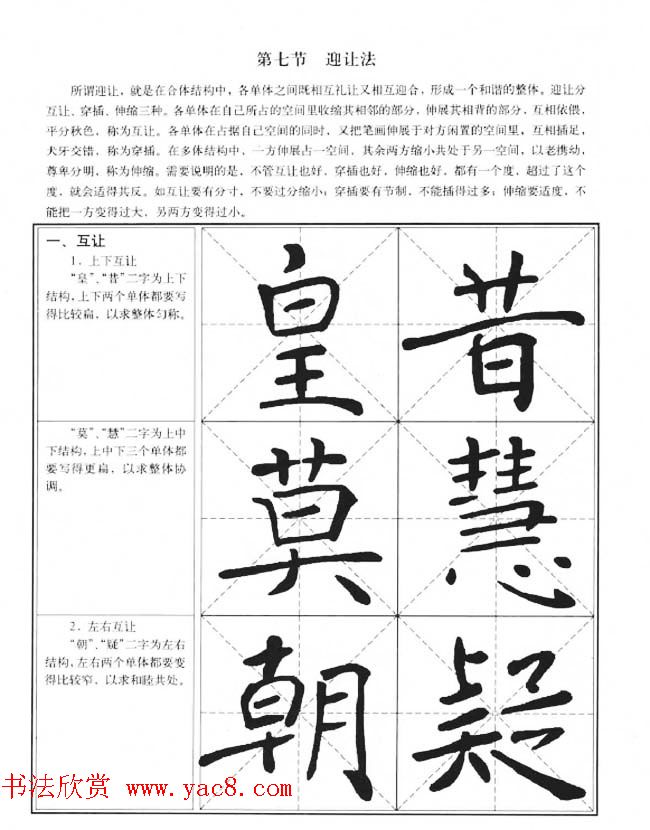 第七节 迎让法
所谓迎让，就是在合体结构中，各单体之间既相互礼让又相互迎合，形成一个和谐的整体。迎让分
互让、穿插、伸缩三种。各单体在自己所占的空间里收缩其相邻的部分，伸展其相背的部分，互相依偎，
平分秋色，称为互让。各单体在占据自己空间的同时，又把笔画伸展于对方闲置的空间里，互相插足，
犬牙交错，称为穿插。在多体结构中，一方伸展占一空间，其余两方缩小共处于另一空间，以老携幼，
尊卑分明，称为伸缩。需要说明的是，不管互让也好，穿插也好，伸缩也好，都有一个度，超过了这个
度，就会适得其反。如互让要有分寸，不要过分缩小；穿插要有节制，不能插得过多；伸缩要适度，不
能把一方变得过大，另两方变得过小。
一、互让
1．上下互让
“皇”、“昔”二字为上下
结构，上下两个单体都要写
得比较扁，以求整体匀称。
皇 昔
“莫”、“慧”二字为上中
下结构，上中下三个单体都
要写得更扁，以求整体协
调。
莫 慧
2．左右互让
“朝”、“疑”二字为左右
结构，左右两个单体都要变
得比较窄，以求和睦共处。
朝 疑
书法欣赏 www.yac8.com